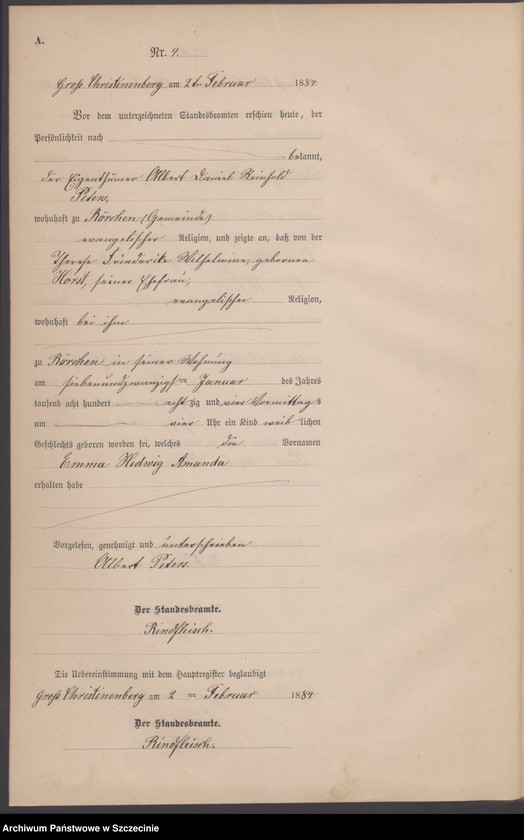 A.
Nr. 4.
Groß Christinenberg am 2ten Februar 1884.
Vor dem unterzeichneten Standesbeamten erschien heute, der
Persönlichkeit nach
bekannt,
der Eigenthümer Albert Daniel Reinhold
Peters,
wohnhaft zu Rörchen (Gemeinde)
evangelischer Religion, und zeigte an, daß von der
Therese Friederike Wilhelmine, geborenen
Horst, seiner Ehefrau,
evangelischer Religion,
wohnhaft bei ihm
zu Rörchen in seiner Wohnung
am siebenundzwanzigsten Januar des Jahres
tausend acht hundert achtzig und vier Vormittags
um vier Uhr ein Kind weiblichen
Geschlechts geboren worden sei, welches die Vornamen
Emma Hedwig Amanda
erhalten habe
Vorgelesen, genehmigt und unterschrieben
Albert Peters.
Der Standesbeamte.
Rindfleisch.
Die Uebereinstimmung mit dem Hauptregister beglaubigt
Groß Christinenberg am 2 ten Februar 1884
Der Standesbeamte.
Rindfleisch.
Archiwum Państwowe w Szczecinie